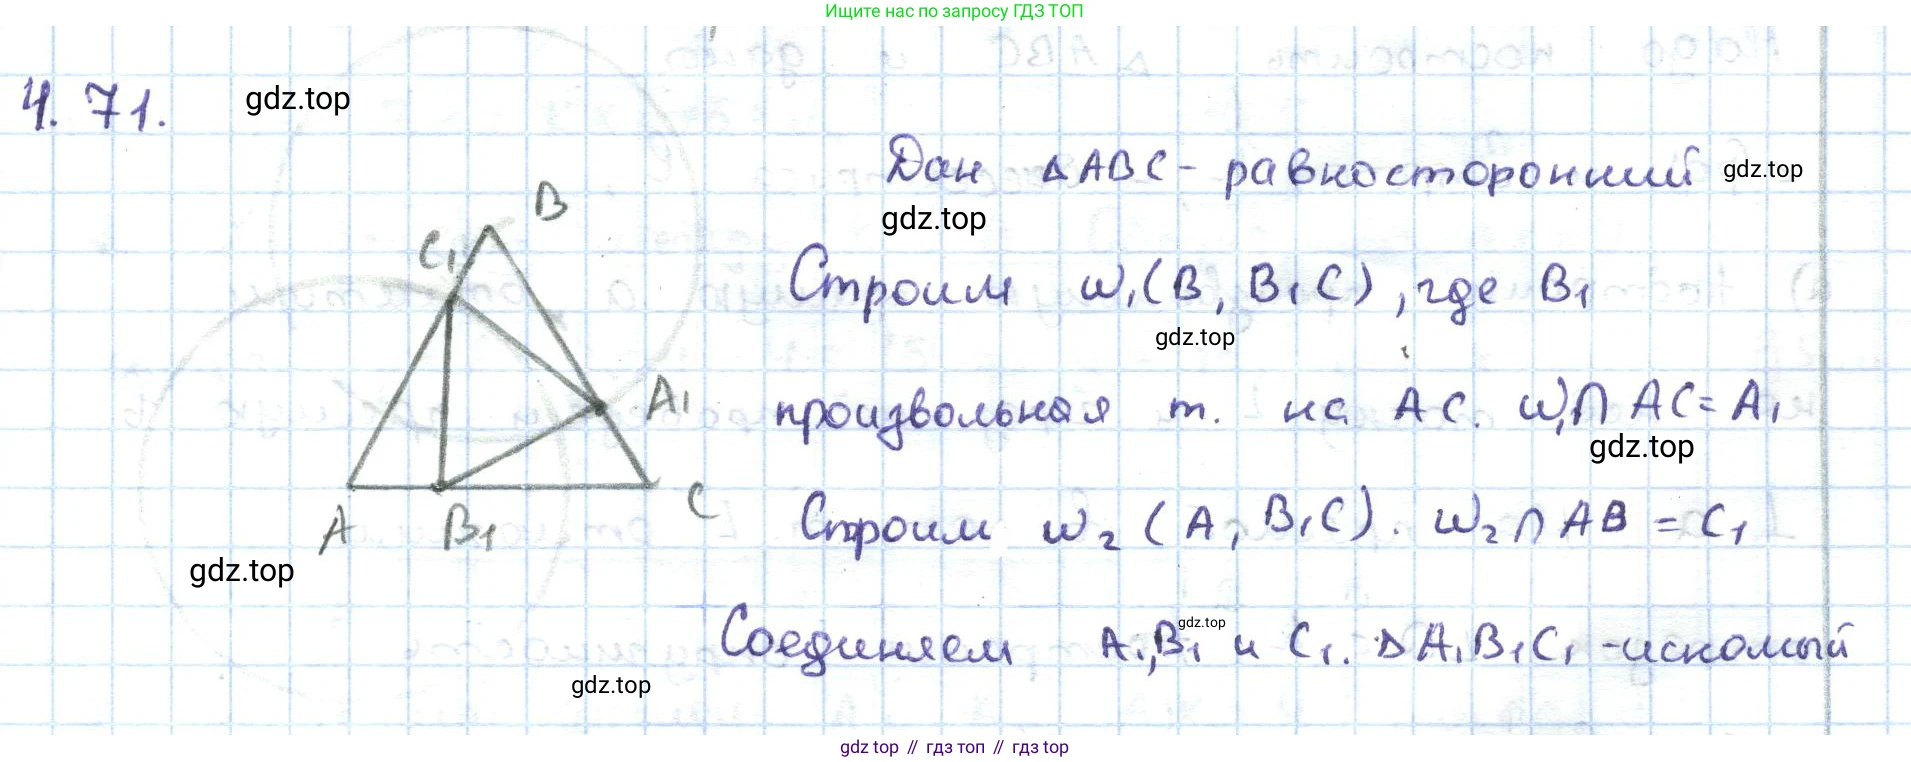 Ищите нас по запросу ГДЗ ТОП
4.71.
gdz.top
Дан △ABC - равносторонний
gdz.top
gdz.top
B
C₁
Строим ω₁(B, B₁C), где B₁
gdz.top
A₁
произвольная т. на AC. ω₁∩AC=A₁
gdz.top
A
B₁
C
Строим ω₂(A, B₁C). ω₂∩AB=C₁
gdz.top
Соединяем A₁,B₁ и C₁. △A₁B₁C₁ - искомый
gdz.top
gdz.top
gdz top // гдз топ // гдз top